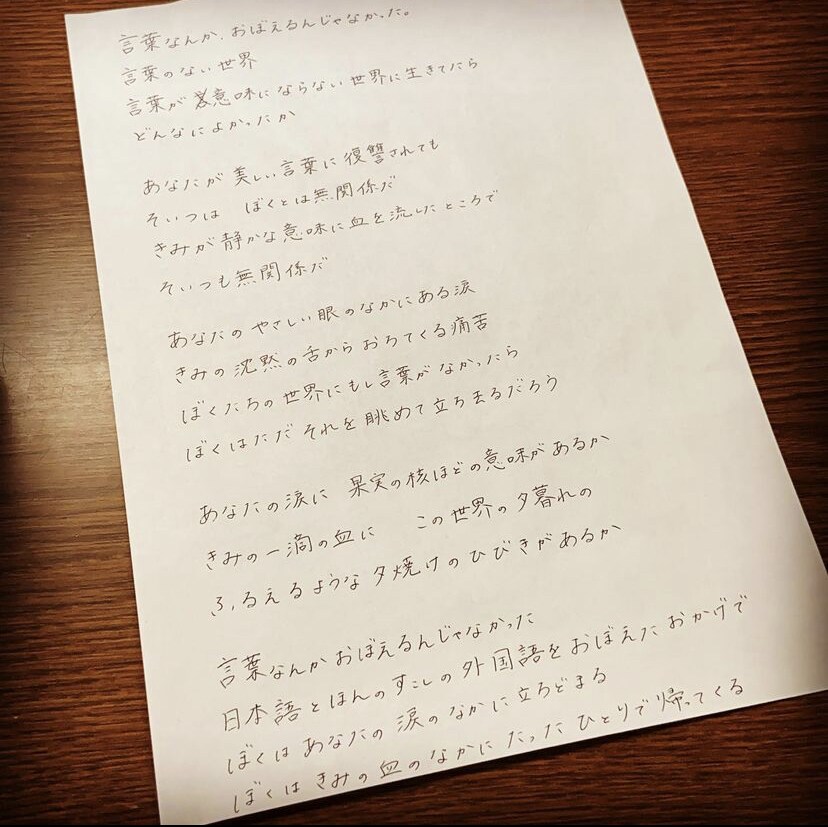 言葉なんか、おぼえるんじゃなかった。
言葉のない世界
言葉が意味にならない世界に生きてたら
どんなによかったか
あなたが美しい言葉に復讐されても
そいつは ぼくとは無関係だ
きみが静かな意味に血を流したところで
そいつも無関係だ
あなたのやさしい眼のなかにある涙
きみの沈黙の舌からおちてくる痛苦
ぼくたちの世界にもし言葉がなかったら
ぼくはただそれを眺めて立ち去るだろう
あなたの涙に 果実の核ほどの意味があるか
きみの一滴の血に この世界の夕暮れの
ふるえるような夕焼けのひびきがあるか
言葉なんかおぼえるんじゃなかった
日本語とほんのすこしの外国語をおぼえたおかげで
ぼくはあなたの涙のなかに立ちどまる
ぼくはきみの血のなかにたったひとりで帰ってくる